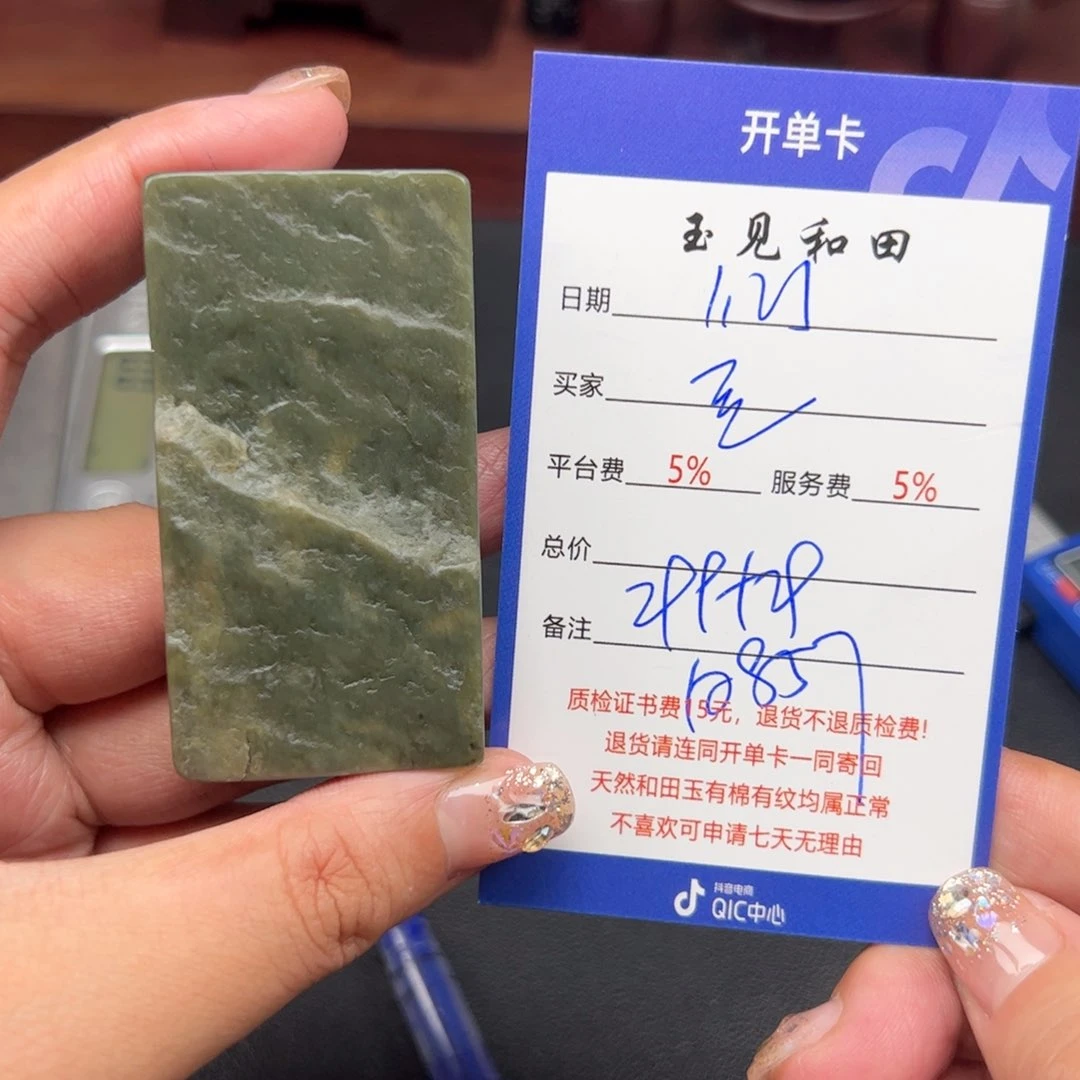 开单卡
玉见和田
日期 1.21
买家
平台费 5% 服务费 5%
总价
备注
质检证书费15元，退货不退质检费!
退货请连同开单卡一同寄回
天然和田玉有棉有纹均属正常
不喜欢可申请七天无理由
抖音电商
QIC中心